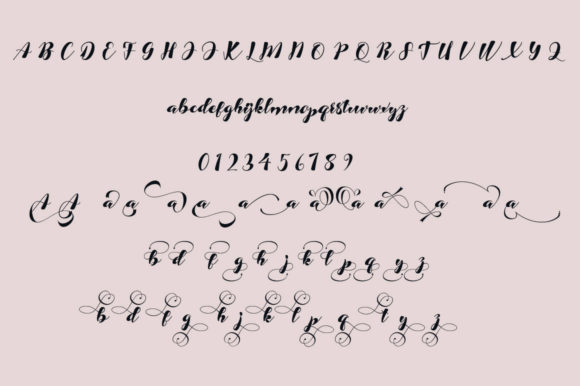 A B C D E F G H I J K L M N O P Q R S T U V W X Y Z
abcdefghijklmnopqrstuvwxyz
0 1 2 3 4 5 6 7 8 9
A A a a a a a a a a a a a a
b d f g h j k l p q y z
b d f g h j k l p q t y z